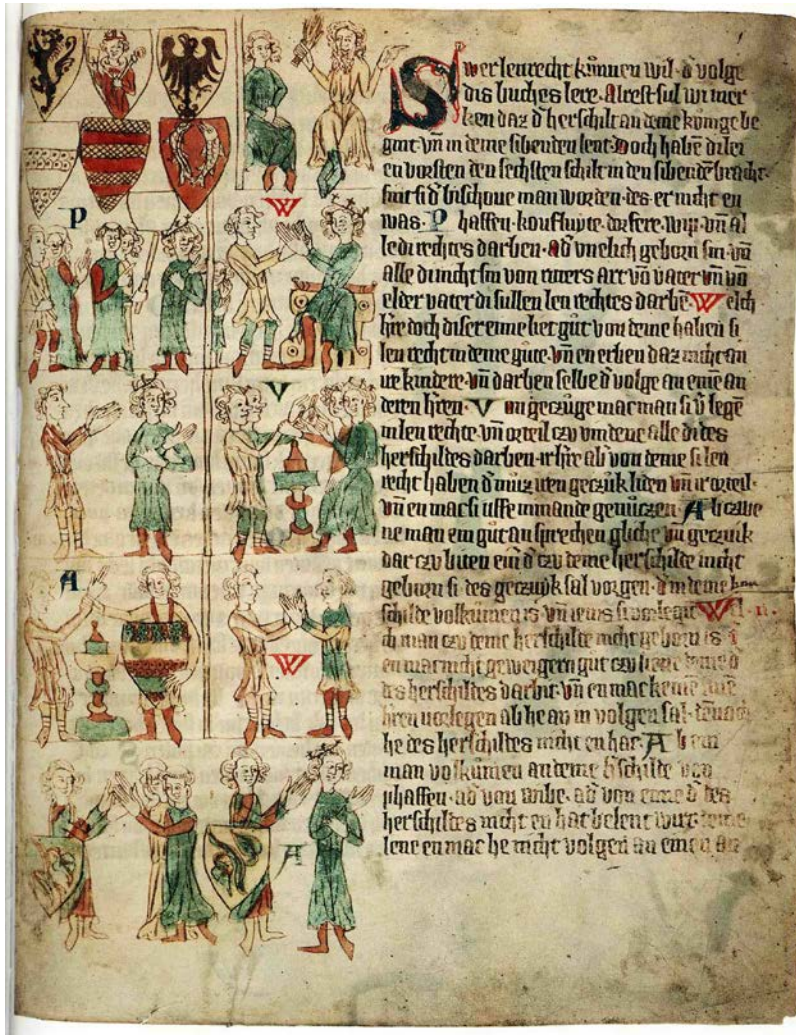 Swer lenrecht kunnen wil · d' volge
dis buches lere · Alrest sul wi mer
ken daz d' herschilt an deme kunige be
gint · vn̄ in deme sibenden lent · Doch habē di lei
en vorsten den sechsten schilt in den sibendē bracht ·
sint si d' bischoue man worden · des er nicht en
was · Phaffen · koufluyte · dorfere · wip · vn̄ al
le di rechtes darben · ad' vnelich geborn sin · vn̄
alle di nicht sin von ritters art · vō vater vn̄ vō
elder vater di sullen len rechtes darbē · Welch
h're doch diser eime liet gut von deme haben si
len recht in deme gute · vn̄ en erben daz nicht an
ire kindere · vn̄ darben selbe d' volge an eine an
deren h'ren · Von geczuge mac man si v'legē
in len rechte · vn̄ orteil czu vindene alle di des
herschildes darben · ir h're ab' von deme si len
recht haben d' muz iren geczuk liden vn̄ ir orteil ·
vn̄ en mac si uffe nimande genuczen · Ab czwe
ne man ein gut an sprechen gliche vn̄ geczuik
dar czu biten ein d' czu deme herschilde nicht
geborn si · des geczuyk sal vorgen · d' in deme her
schilde volkumen is vn̄ ienis si vorlegit · Wel
ch man czu deme herschilde nicht geborn is
en mac nicht geweigern gut czu liene deme d'
des herschildes darbit · vn̄ en mac keinē
h'ren vorlegen ab he an in volgen sal · dēnoch
he des herschildes nicht en hat · Ab ein
man volkumen an deme h'schilde von
phaffen · ad' von wibe · ad' von eime d' des
herschildes nicht en hat belent wirt · deme
lene en mac he nicht volgen an einen an
P
W
V
A
W
A